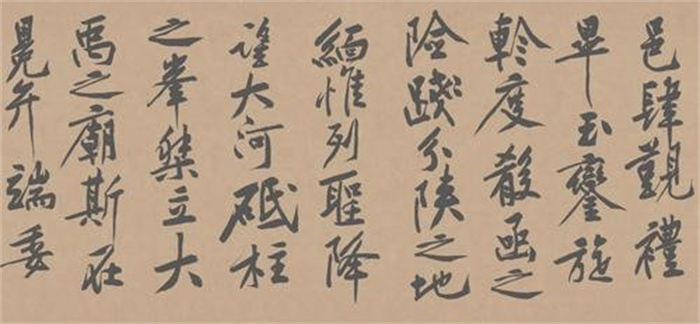 邑肆覲禮
畢玉鑾旋
軫度殽函之
險踐分陝之地
緬惟列聖降
望大河砥柱
之峯桀立大
禹之廟斯在
冕弁端委